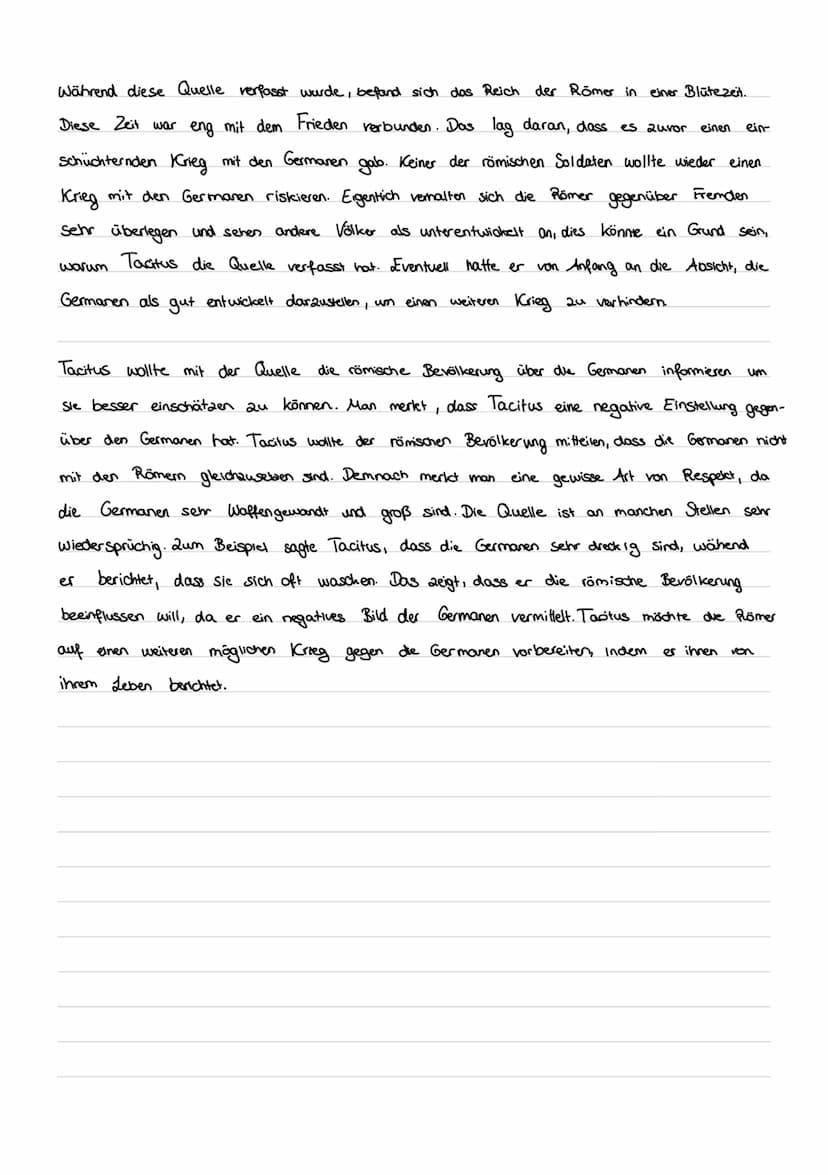 Während diese Quelle verfasst wurde, befand sich das Reich der Römer in einer Blütezeit.
Diese Zeit war eng mit dem Frieden verbunden. Das lag daran, dass es zuvor einen ein-
schüchternden Krieg mit den Germanen gab. Keiner der römischen Soldaten wollte wieder einen
Krieg mit den Germanen riskieren. Eigentlich verhalten sich die Römer gegenüber Fremden
sehr überlegen und sehen andere Völker als unterentwickelt an, dies könnte ein Grund sein,
warum Tacitus die Quelle verfasst hat. Eventuell hatte er von Anfang an die Absicht, die
Germanen als gut entwickelt darzustellen, um einen weiteren Krieg zu verhindern.
Tacitus wollte mit der Quelle die römische Bevölkerung über die Germanen informieren um
sie besser einschätzen zu können. Man merkt, dass Tacitus eine negative Einstellung gegen-
über den Germanen hat. Tacitus wollte der römischen Bevölkerung mitteilen, dass die Germanen nicht
mit den Römern gleichzusetzen sind. Demnach merkt man eine gewisse Art von Respekt, da
die Germanen sehr Waffengewandt und groß sind. Die Quelle ist an manchen Stellen sehr
wiedersprüchig. Zum Beispiel sagte Tacitus, dass die Germanen sehr dreckig sind, wöhend
er berichtet, dass sie sich oft waschen. Das zeigt, dass er die römische Bevölkerung
beeinflussen will, da er ein negatives Bild der Germanen vermittelt. Tacitus möchte die Römer
auf einen weiteren möglichen Krieg gegen die Germanen vorbereiten, indem er ihnen von
ihrem Leben berichtet.